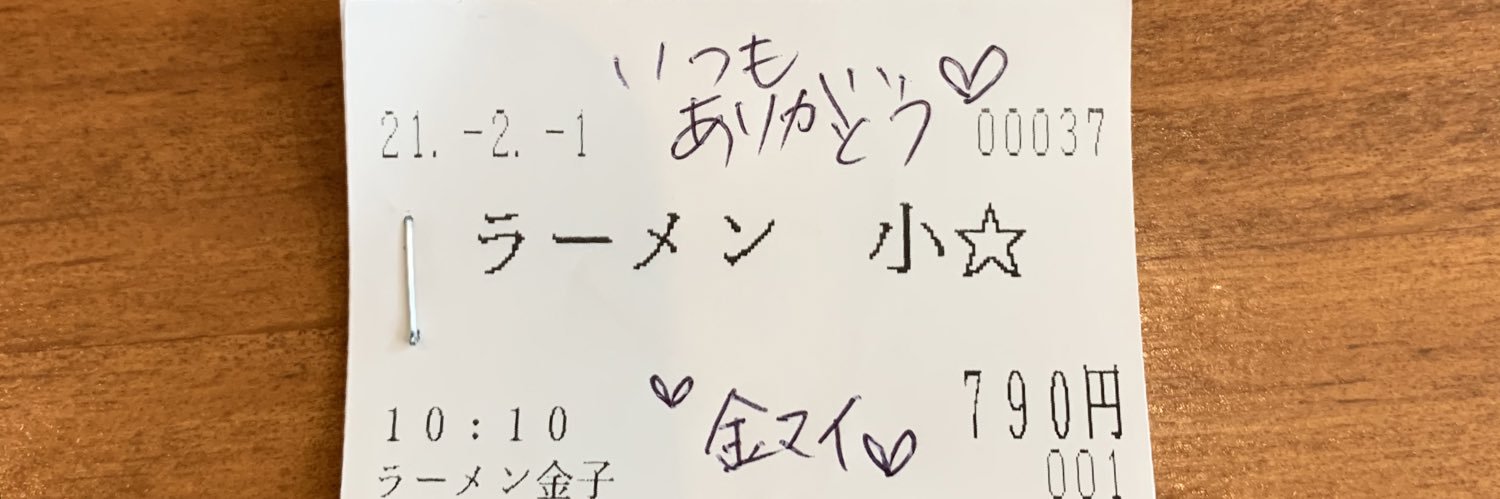 いつも
ありがとう♡
21.-2.-1 00037
ラーメン 小☆
♡金ヌイ♡
790円
10:10
ラーメン金子 001